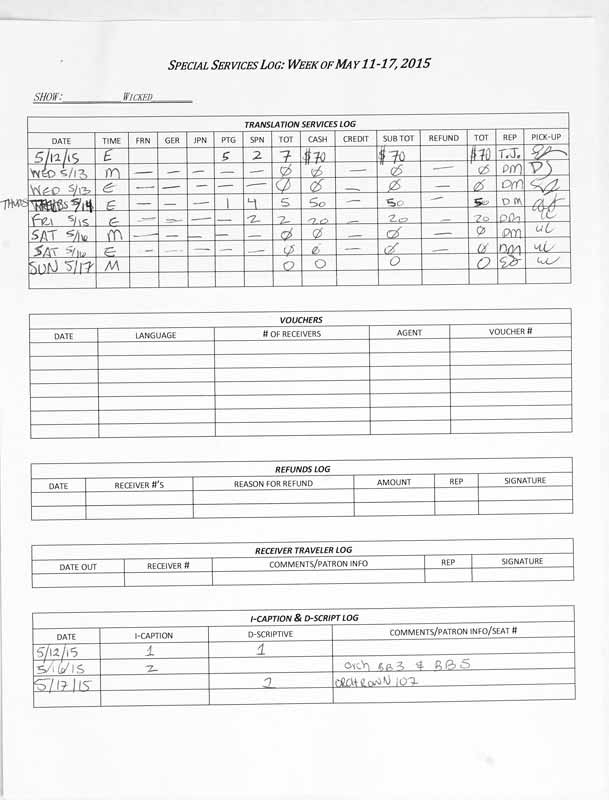 SPECIAL SERVICES LOG: WEEK OF MAY 11-17, 2015
SHOW: WICKED
TRANSLATION SERVICES LOG
DATE TIME FRN GER JPN PTG SPN TOT CASH CREDIT SUB TOT REFUND TOT REP PICK-UP
5/12/15 E 5 2 7 $70 $70 $70 T.J.
WED 5/13 M — — — — — Ø Ø — Ø — Ø DM DS
WED 5/13 E — — — — — Ø Ø — Ø — Ø DM
THURS THURS 5/14 E — — — 1 4 5 50 — 50 — 50 DM
FRI 5/15 E — — — — 2 2 20 — 20 — 20 DM
SAT 5/16 M — — — — — Ø Ø — Ø — Ø DM
SAT 5/16 E — — — — — Ø Ø — Ø — Ø DM
SUN 5/17 M 0 0 0 0
VOUCHERS
DATE LANGUAGE # OF RECEIVERS AGENT VOUCHER #
REFUNDS LOG
DATE RECEIVER #'S REASON FOR REFUND AMOUNT REP SIGNATURE
RECEIVER TRAVELER LOG
DATE OUT RECEIVER # COMMENTS/PATRON INFO REP SIGNATURE
I-CAPTION & D-SCRIPT LOG
DATE I-CAPTION D-SCRIPTIVE COMMENTS/PATRON INFO/SEAT #
5/12/15 1 1
5/16/15 2 Orch BB3 & BB5
5/17/15 2 ORCH ROW N 107